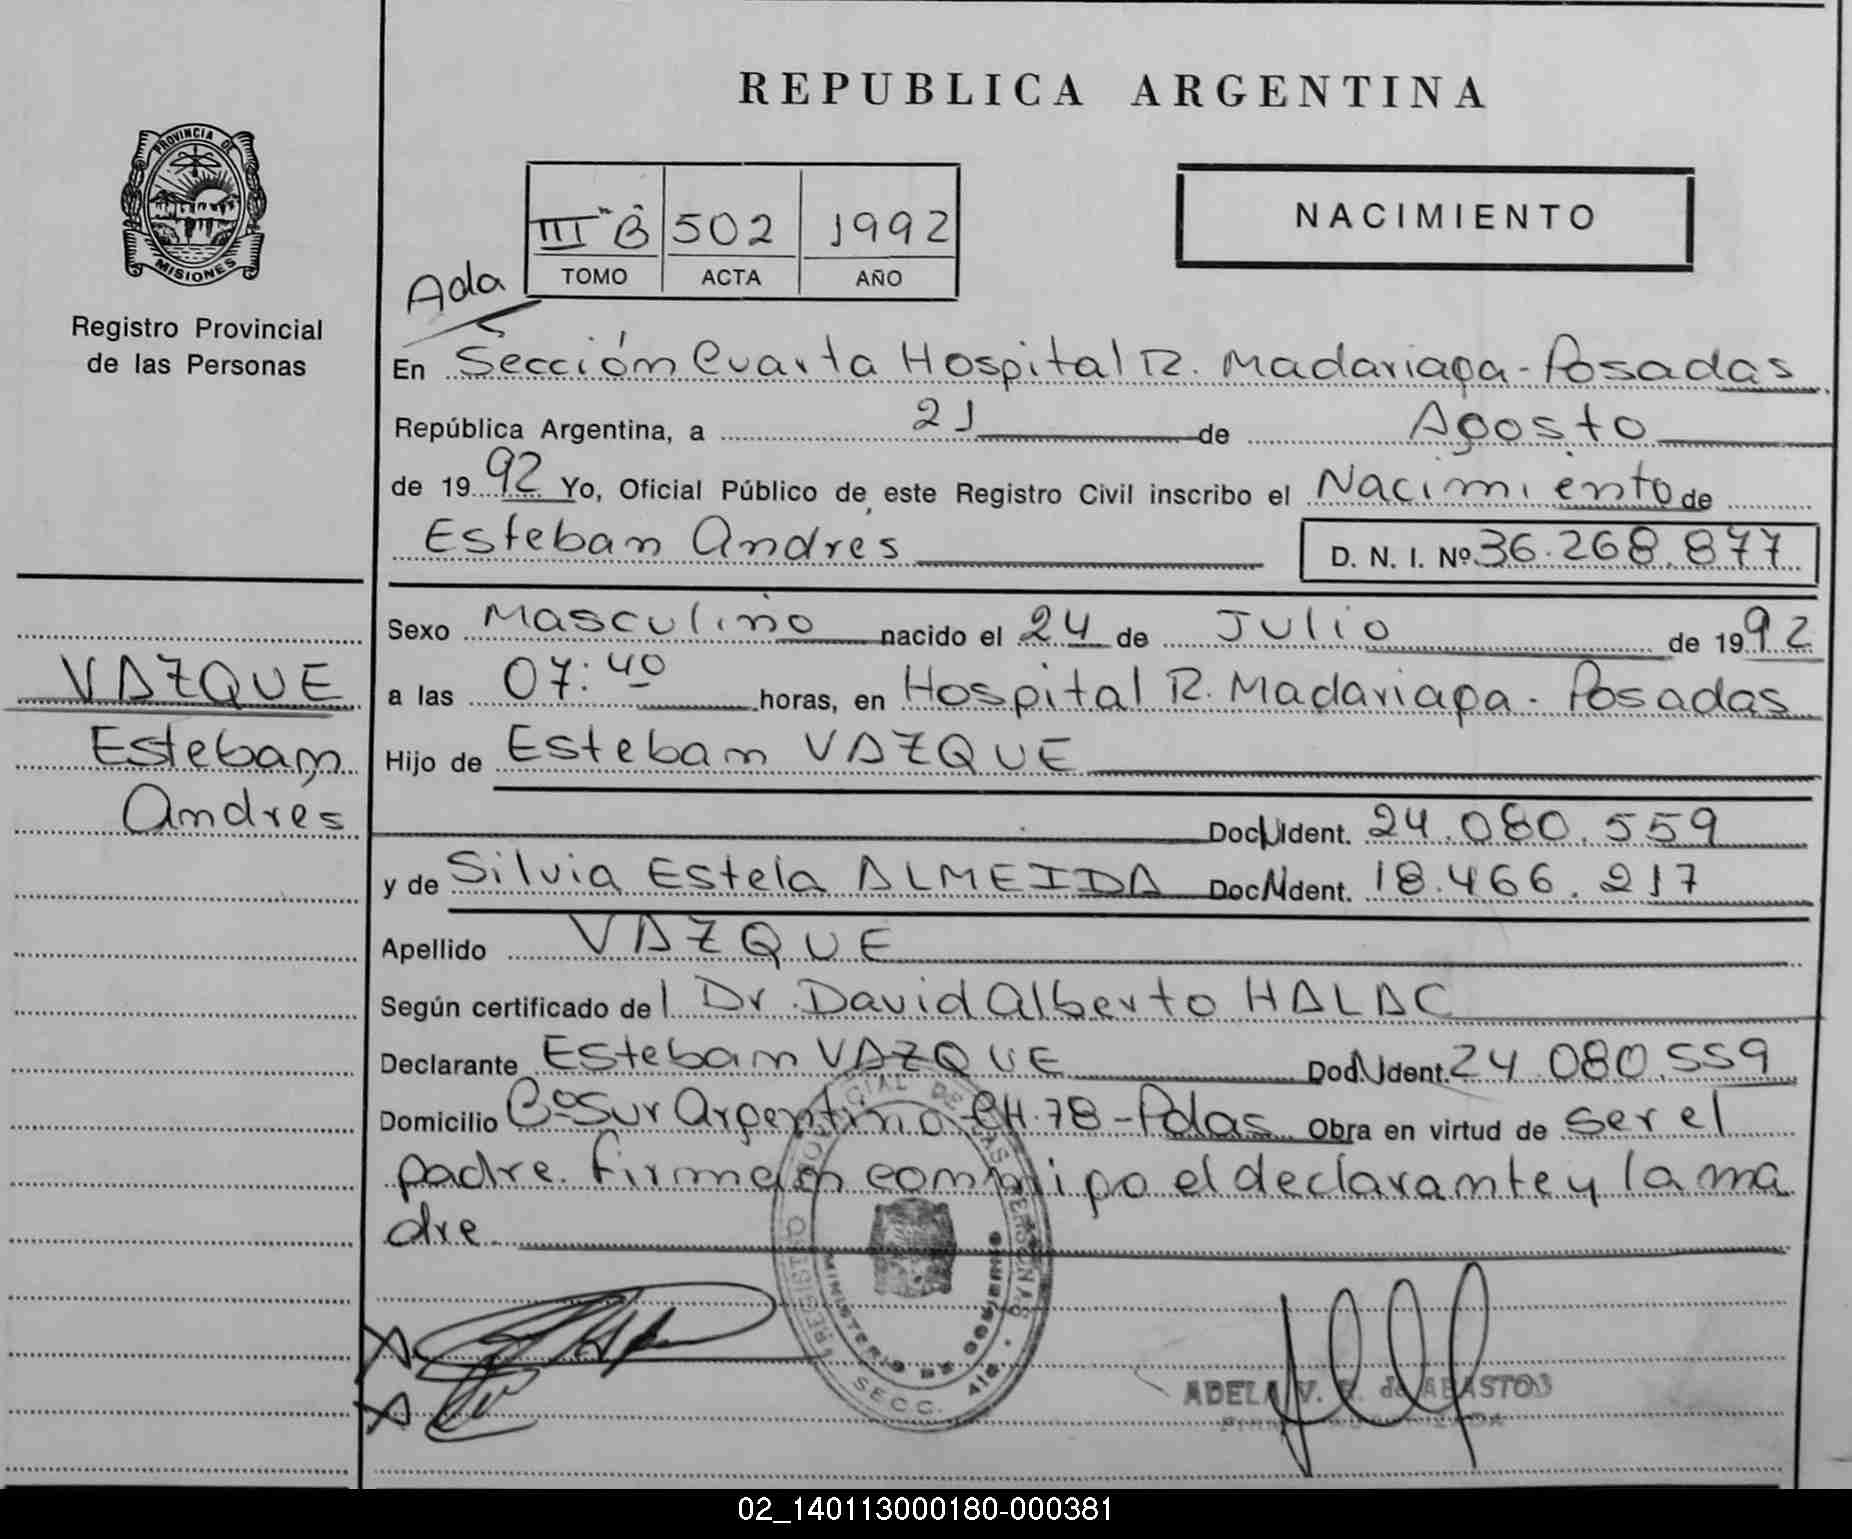 REPUBLICA ARGENTINA
PROVINCIA DE
MISIONES
Registro Provincial
de las Personas
III "B" 502 1992
TOMO ACTA AÑO
NACIMIENTO
Ada
En Sección Cuarta Hospital R. Madariaga - Posadas
República Argentina, a 21 de Agosto
de 1992 Yo, Oficial Público de este Registro Civil inscribo el Nacimiento de
Esteban Andrés D. N. I. Nº 36.268.877
Sexo Masculino nacido el 24 de Julio de 1992
VAZQUE
a las 07:40 horas, en Hospital R. Madariaga - Posadas
Esteban
Hijo de Esteban VAZQUE
Andrés
Doc. Ident. 24.080.559
y de Silvia Estela ALMEIDA Doc. Ident. 18.466.217
Apellido VAZQUE
Según certificado del Dr. David Alberto HALAC
Declarante Esteban VAZQUE Doc. Ident. 24.080.559
Domicilio Bº Sur Argentino CH. 78 - Pdas Obra en virtud de ser el
padre. Firman conmigo el declarante y la ma
dre.
REGISTRO DE LAS PERSONAS
MINISTERIO DE GOBIERNO
SECC.
ADELA V. de ABASTOS
02_140113000180-000381